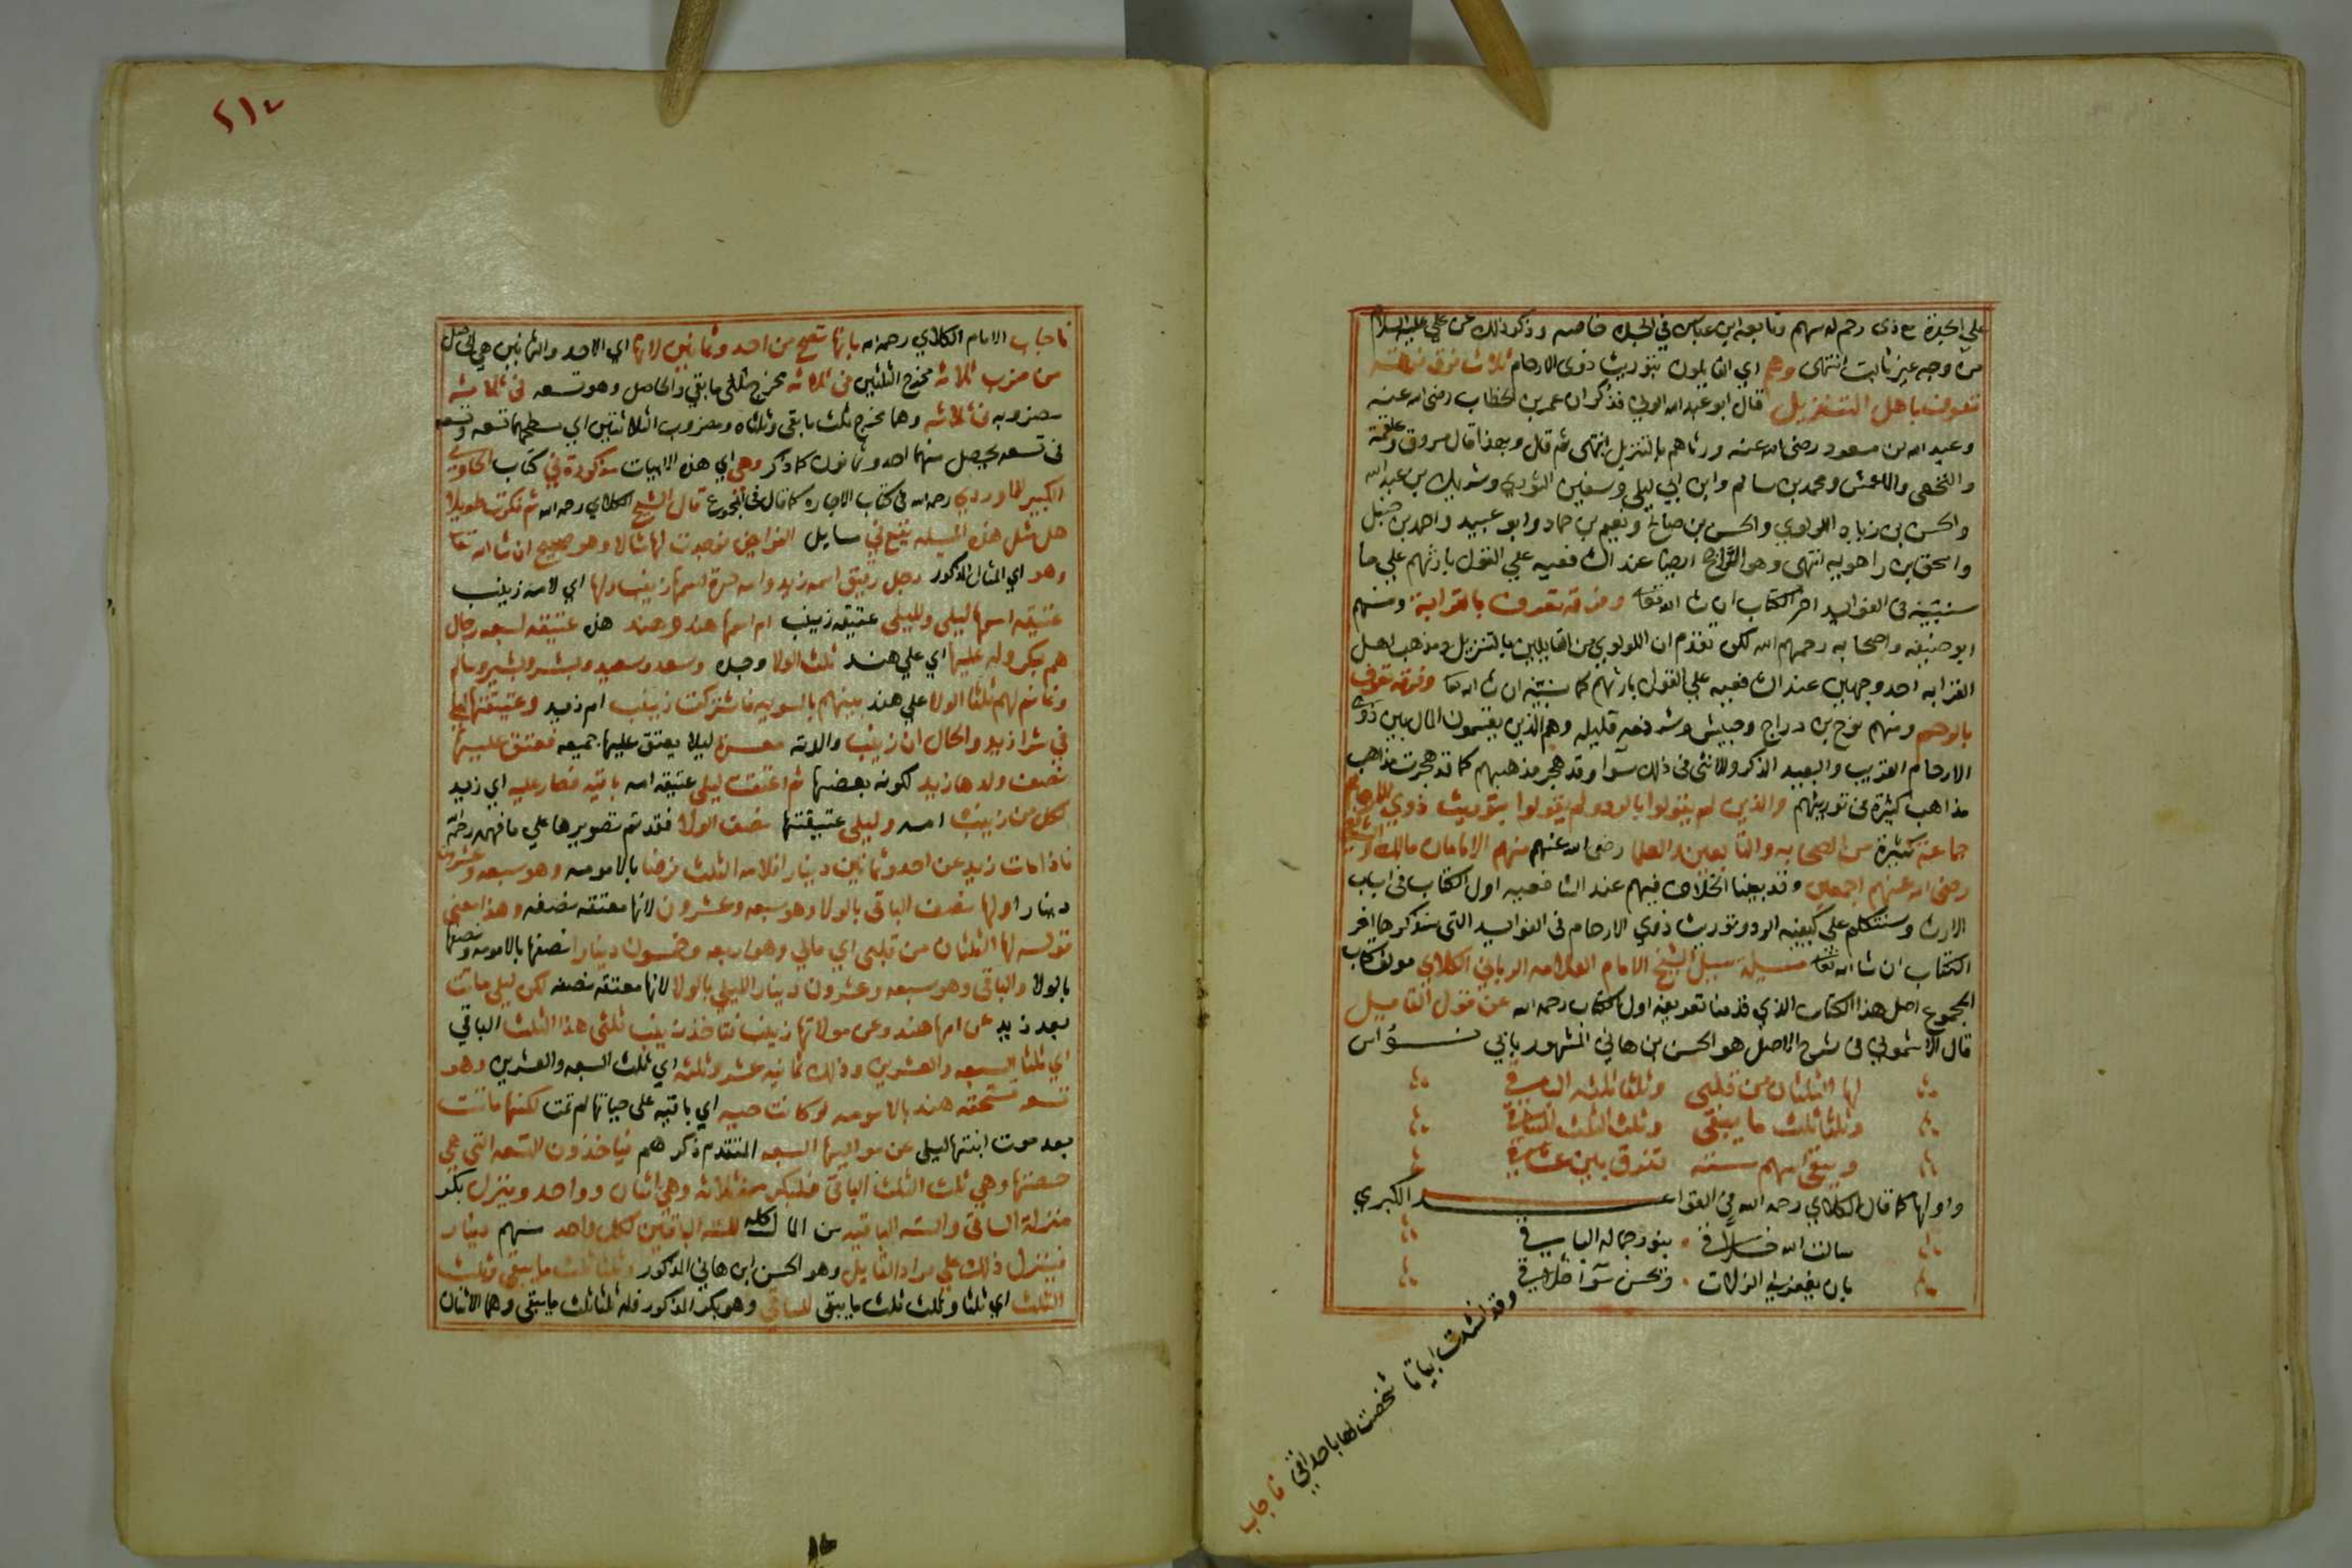 على الجدة مع ذى رحم له سهم وتابعه ابن عباس في الجدة خاصه وذكر ذلك عن علي عليه السلام
من وجه غير ثابت انتهى وهم اي القايلون بتوريث ذوى الارحام ثلاث فرق فرقة
تعرف باهل التنزيل قال ابو عبد الله الونى فذكر ان عمر بن الخطاب رضى الله عنه
وعبد الله بن مسعود رضى الله عنه ورثاهم بالتنزيل انتهى ثم قال وبهذا قال مسروق وعلقمة
والنخعى والاعمش ومحمد بن سالم وابن ابي ليلى وسفين الثوري وشريك بن عبد الله
والحسن بن زياد اللولوي والحسن بن صالح ونعيم بن حماد وابو عبيد واحمد بن حنبل
واسحق بن راهويه انتهى وهو الراجح ايضا عند الشافعيه علي القول بارثهم علي ما
سنبينه فى الفوايد اخر الكتاب ان شا الله تعالى وفرقه تعرف بالقرابة ومنهم
ابو حنيفه واصحابه رحمهم الله لكن تقدم ان اللولوي من القايلين بالتنزيل ومذهب اهل
القرابه احد وجهين عند الشافعيه علي القول بارثهم كما سنبينه ان شا الله تعالى وفرقه تعرف
بالرحم ومنهم نوح بن دراج وحبيش وشرذمه قليله وهم الذين يقسمون المال بين ذوي
الارحام القريب والبعيد الذكر والانثى فى ذلك سوآ وقد هجر مذهبهم كما قد هجرت مذاهب
مذاهب كثيرة فى توريثهم والذين لم يقولوا بالرد ولم يقولوا بتوريث ذوي الارحام
جماعة كثيرة من الصحابه والتابعين والعلما رضى الله عنهم منهم الامامان مالك والشافعى
رضى الله عنهم اجمعين وقد بينا الخلاف فيهم عند الشافعيه اول الكتاب فى اسباب
الارث وسنتكلم على كيفيه الرد وتوريث ذوي الارحام فى الفوايد التى سنذكرها اخر
الكتاب ان شا الله تعالى مسيلة سيل الشيخ الامام العلامه الرباني الكلاي مولف كتاب
المجموع اصل هذا الكتاب الذي قدمنا تعريفه اول الكتاب رحمه الله عن قول القايل
قال الاشموني فى شرح الاصل هو الحسن بن هاني المشهور بابي نواس
لها الثلثان من قلبى وثلثا ثلثه الباقي
وثلثا ثلث ما يبقى وثلث الثلث للساقي
ويبقى اسهم ستة تفرق بين عشاقي
واولها كما قال الكلاي رحمه الله فى القواعد الكبري
سالت الله خلاقي بنور جماله الباقي
بان يغفر لي الزلات وتحسن سوآ اخلاقي
وقد انشدت ابياتا شخصت لها باحداقي
فاجاب
٢١٤
فاجاب الامام الكلاي رحمه الله بانها تصح من احد وثمانين لانها اي الاحد والثمانين هي الحاصل
من ضرب ثلاثه مخرج الثلثين فى ثلاثه مخرج ثلثى ما بقي والحاصل وهو تسعه فى ثلاثه
مضروبه فى ثلاثه وهما مخرج ثلث ما بقى وثلثاه ومضروب الثلاثتين اي مسطحهما تسعه وتسعه
فى تسعه يحصل منهما احد وثمانون كما ذكر وهى اي هذه الابيات مذكورة في كتاب الحاوي
الكبير للماوردي رحمه الله فى كتاب الاجاره كما قال فى المجموع قال الشيخ الكلاي رحمه الله ثم فكرت طويلا
هل مثل هذه المسيله يقع في مسايل الفرايض فوجدت لها مثالا وهو صحيح ان شا الله تعالى
وهو اي المثال المذكور رجل رقيق اسمه زيد وامه حرة اسمها زينب ولها اي لامه زينب
عتيقه اسمها ليلى ولليلى عتيقه زينب ام اسمها هند وهند هذه عتيقه لسبعه رجال
هم بكر وله عليها اي علي هند ثلث الولا وحده وسعد وسعيد وبشر وبشير وسالم
وغانم لهم ثلثا الولا علي هند بينهم بالسويه فاشتركت زينب ام زيد وعتيقتها ليلى
في شرا زيد والحال ان زينب والدته معسرة ليلا يعتق عليها جميعه فعتق عليها
نصف ولدها زيد لكونه بعضها ثم اعتقت ليلى عتيقه امه باقيه فصار عليه اي زيد
لكل من زينب امه وليلى عتيقتها نصف الولا فقد تم تصويرها علي ما فهمه رحمه الله
فاذا مات زيد عن احد وثمانين دينارا فلامه الثلث فرضا بالامومه وهو سبعه وعشرون
دينارا ولها نصف الباقى بالولا وهو سبعه وعشرون لانها معتقه نصفه وهذا معنى
قوله لها الثلثان من قلبى اي مالي وهو اربعه وخمسون دينارا نصفها بالامومه ونصفها
بالولا والباقى وهو سبعه وعشرون دينارا لليلى بالولا لانها معتقه نصفه لكن ليلى ماتت
بعد زيد عن امها هند وعن مولاتها زينب فتاخذ زينب ثلثى هذا الثلث الباقي
اي ثلثا السبعه والعشرين وذلك ثمانيه عشر وثلثه اي ثلث السبعه والعشرين وهو
تسعه تستحقه هند بالامومه لو كانت حيه اي باقيه على حياتها لم تمت لكنها ماتت
بعد موت ابنتها ليلى عن مواليها السبعه المتقدم ذكرهم فياخذون التسعه التي هي
حصتها وهي ثلث الثلث الباقى فلبكر منه ثلاثه وهى اثنان وواحد وينزل بكر
منزلة الساقى والسته الباقيه من المال كله للسته الباقين لكل واحد منهم دينار
فينزل ذلك علي مراد القايل وهو الحسن ابن هاني المذكور وثلثا ثلث ما يبقى وثلث
الثلث اي ثلثا وثلث ثلث ما يبقى للساقي وهو بكر المذكور فله ثلثا ثلث ما يبقى وهما الاثنان